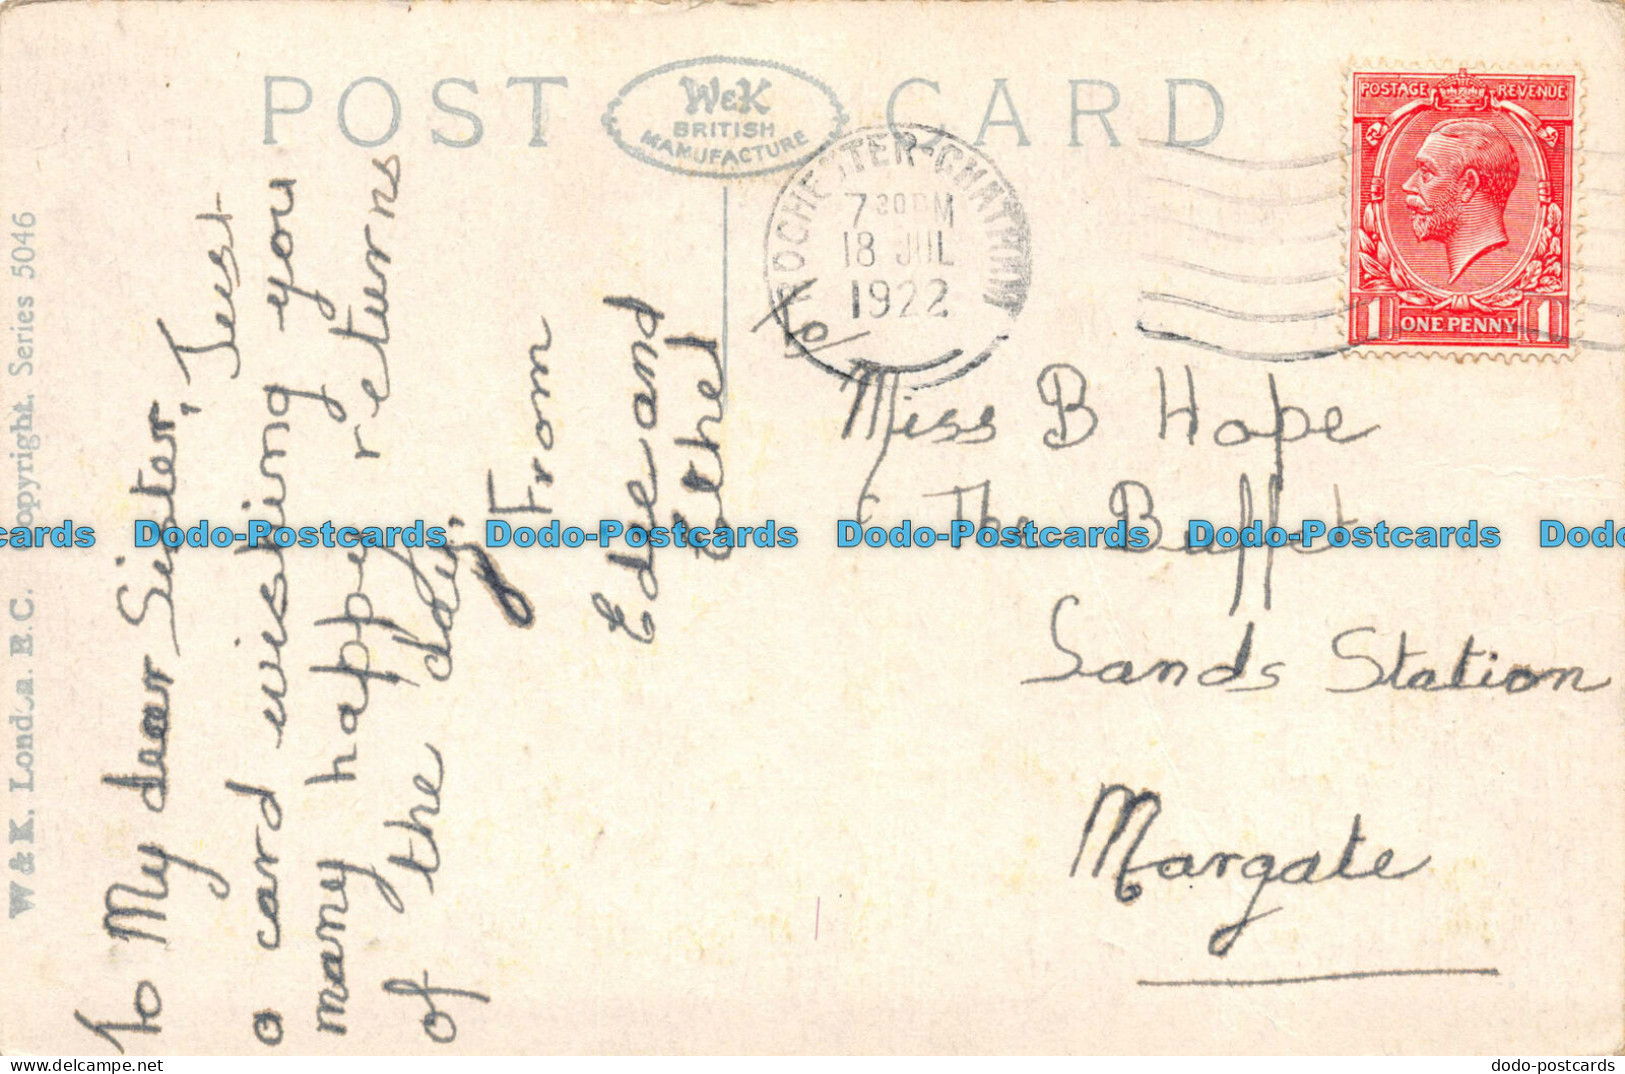 POST CARD
W&K
BRITISH
MANUFACTURE
ROCHESTER-CHATHAM
7 30 PM
18 JUL
1922
POSTAGE REVENUE
1 ONE PENNY 1
W & K. London. E.C. Copyright. Series 5046
To My dear Sister, Just
a card wishing you
many happy returns
of the day.
From
Edie and
Ethel
Miss B Hope
The Buffet
Sands Station
Margate
Dodo-Postcards Dodo-Postcards Dodo-Postcards Dodo-Postcards Dodo-Postcards
dodo-postcards